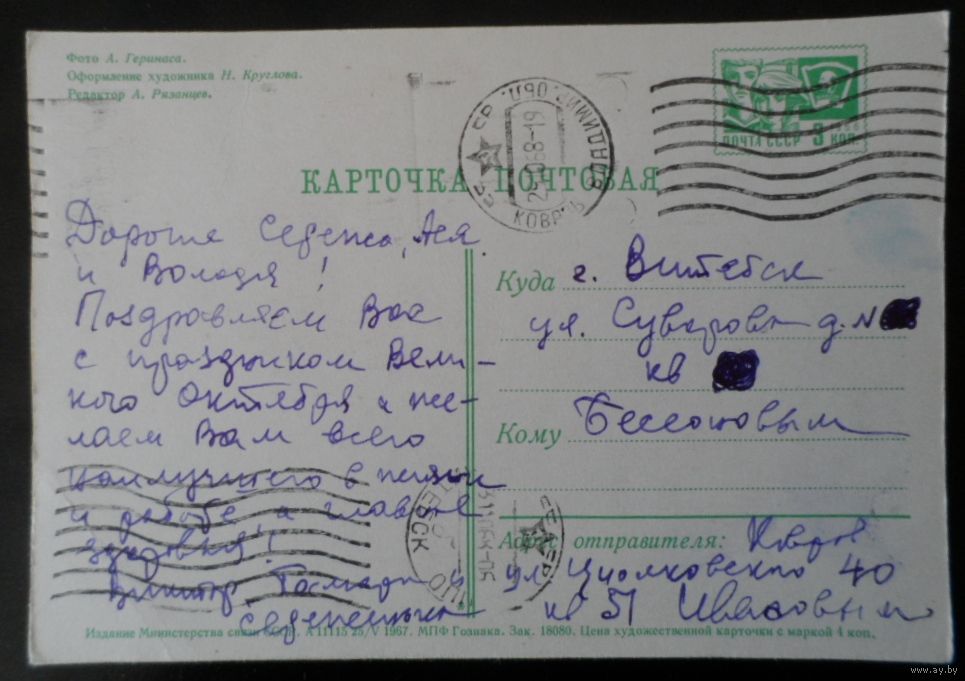 Фото А. Геринаса.
Оформление художника Н. Круглова.
Редактор А. Рязанцев.
ПОЧТА СССР 3 КОП.
1966
КАРТОЧКА ПОЧТОВАЯ
КОВРОВ ВЛАДИМИР. ОБЛ.
Дорогие Сережа, Ася
и Володя!
Поздравляем Вас
с праздником Вели-
кого Октября и же-
лаем Вам всего
наилучшего в жизни
и работе, а главное
здоровья!
Виктор, Тамара и
Сереженька
Куда г. Витебск
ул. Суворова д. N
кв
Кому Бессоновым
Адрес отправителя: Ковров
ул Циолковского 40
кв 51
Издание Министерства связи СССР. А 11115 25/V 1967. МПФ Гознака. Зак. 18080. Цена художественной карточки с маркой 4 коп.
www.ay.by